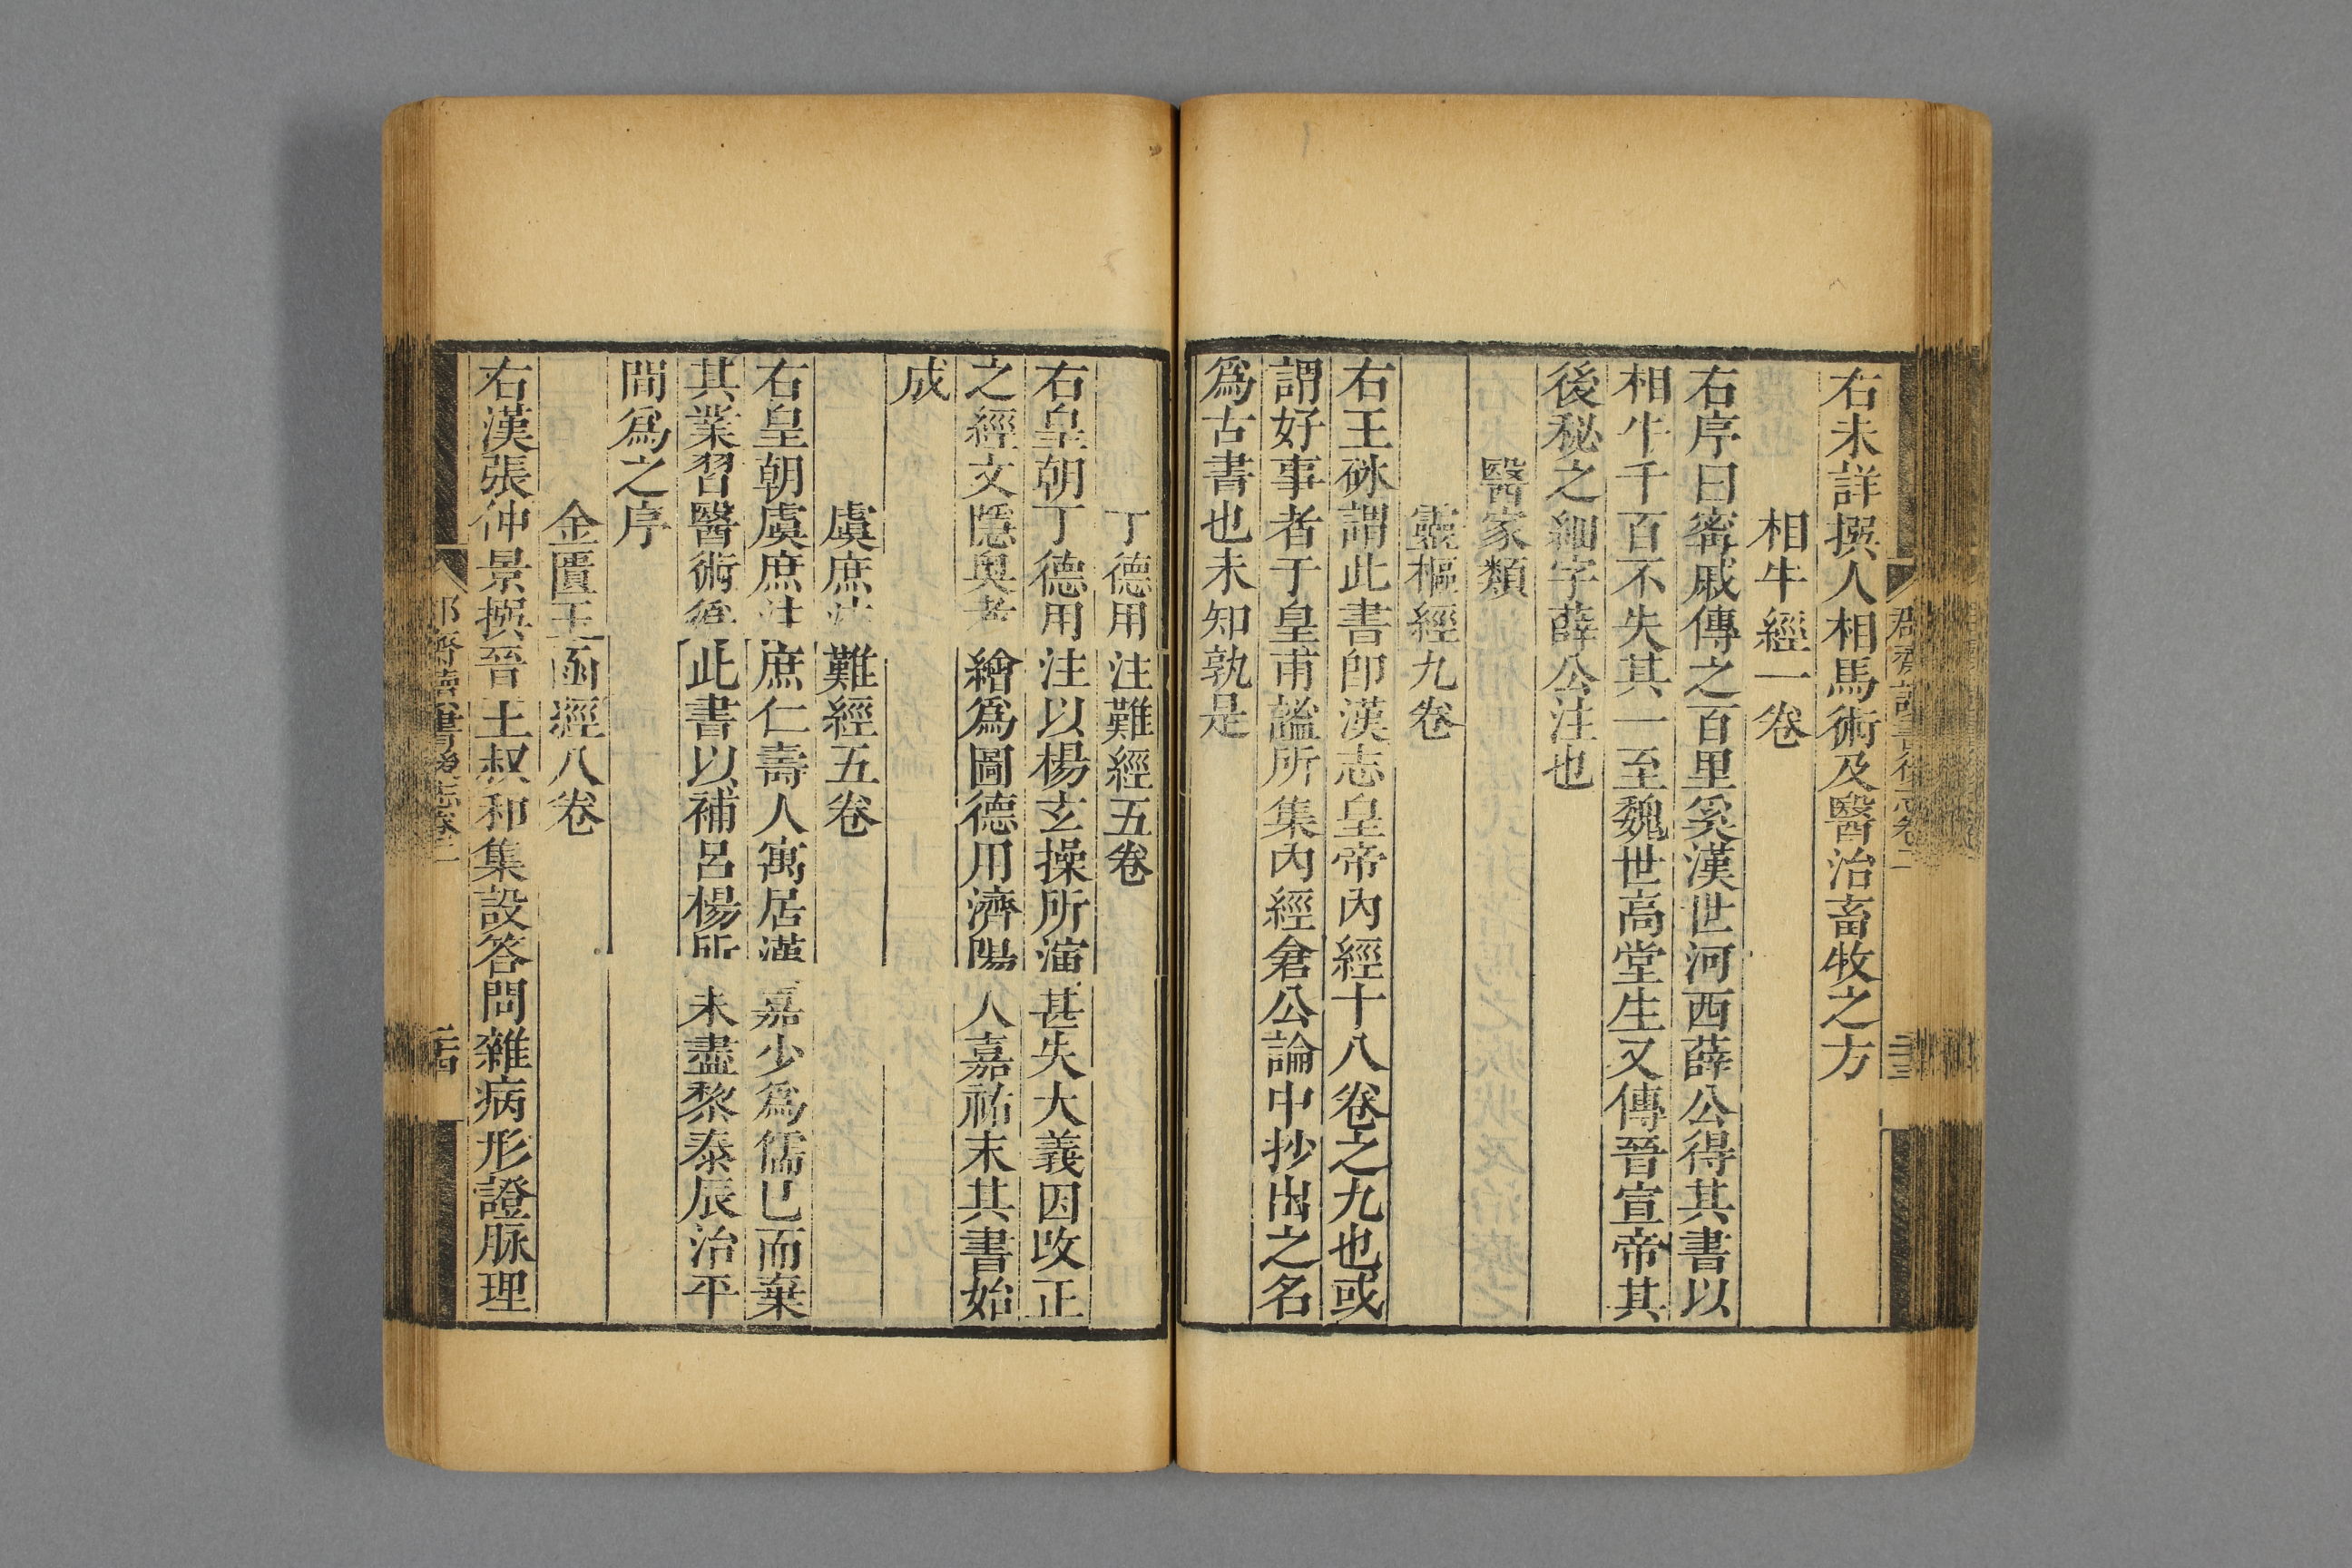 右未詳撰人相馬術及醫治畜牧之方
相牛經一卷
右序曰甯戚傳之百里奚漢世河西薛公得其書以
相牛千百不失其一至魏世高堂生又傳晉宣帝其
後秘之細字薛公注也
醫家類
靈樞經九卷
右王砅謂此書卽漢志皇帝內經十八卷之九也或
謂好事者于皇甫謐所集內經倉公論中抄出之名
爲古書也未知孰是
丁德用注難經五卷
右皇朝丁德用注以楊玄操所演甚失大義因改正
之經文隱奧者繪爲圖德用濟陽人嘉祐末其書始
成
虞庶注難經五卷
右皇朝虞庶注庶仁壽人寓居漢嘉少爲儒已而棄
其業習醫術爲此書以補呂楊所未盡黎泰辰治平
間爲之序
金匱玉函經八卷
右漢張仲景撰晉王叔和集設答問雜病形證脉理